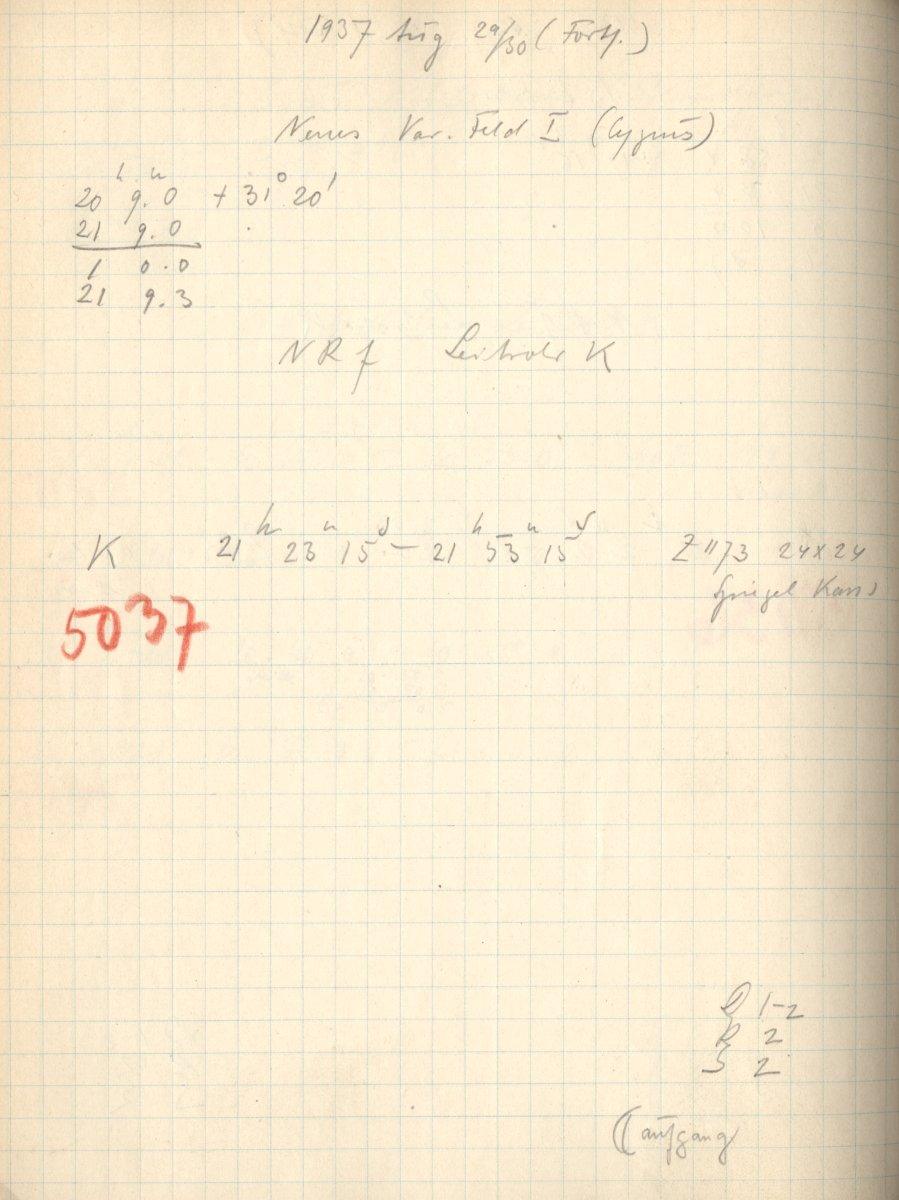 1937 Aug 29/30 (Forts.)
Neues Var. Feld I (Cygnus)
20ʰ 9.0ᵐ + 31° 20'
21 9.0
1 0.0
21 9.3
NRf Leitrohr K
K 21ʰ 23ᵐ 15ˢ – 21ʰ 53ᵐ 15ˢ Z"73 24x24
Spiegel Kass
5037
D 1-2
R 2
S 2
(aufgang